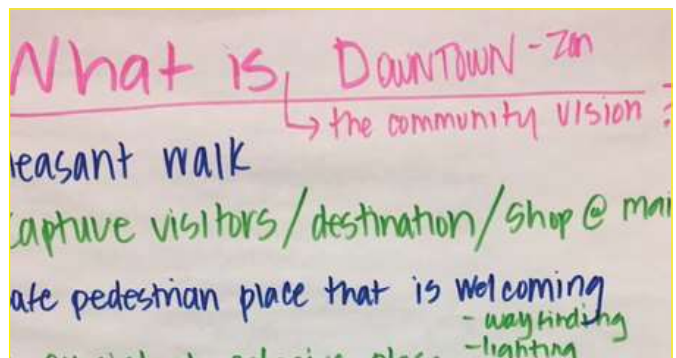 What is DOWNTOWN - Zon
↳ the community vision
leasant walk
capture visitors/destination/shop @ mai
afe pedestrian place that is welcoming
- wayfinding
- lighting